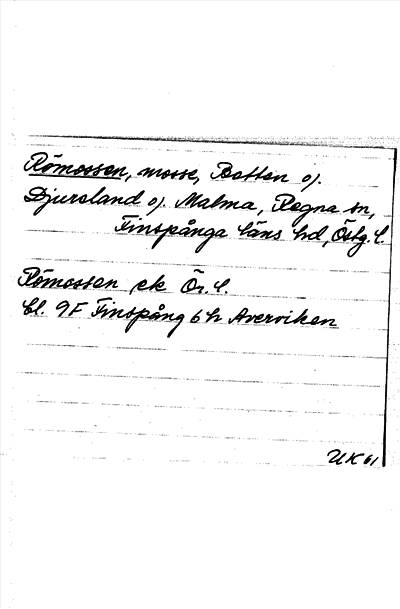 Römossen, mosse, Botten o).
Djursland o). Malma, Regna sn,
Finspånga läns hd, Östg. l.
Römossen ek Ö. l.
bl. 9F Finspång 6 h Averviken
UK 61